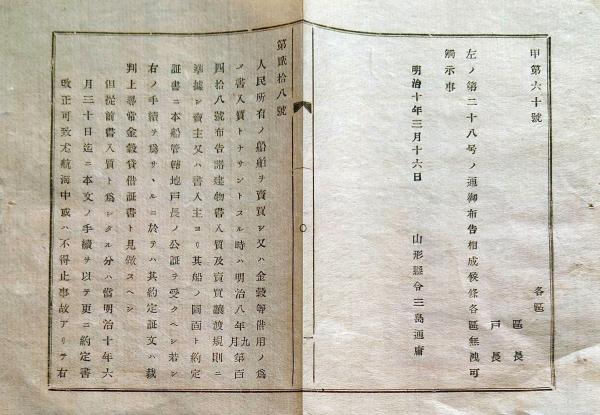 甲第六十號
各區
區長
戸長
左ノ第二十八号ノ通御布告相成候條各區無洩可
觸示事
明治十年三月十六日
山形縣令三島通庸
第貳拾八號
人民所有ノ船舶ヲ賣買シ又ハ金穀等借用ノ爲
メ書入質トナサントスル時ハ明治八年九月第百
四拾八號布告諸建物書入質及賣買讓渡規則ニ
準據シ賣主又ハ書入主ヨリ其船ノ圖面ト約定
証書ニ本船管轄地戸長ノ公証ヲ受クヘシ若シ
右ノ手續ヲ爲サヽルニ於テハ其約定証文ハ裁
判上尋常金穀貸借証書ト見做スヘシ
但從前書入質ト爲シタル分ハ當明治十年六
月三十日迄ニ本文ノ手續ヲ以テ更ニ約定書
改正可致尤航海中或ハ不得止事故アリテ右